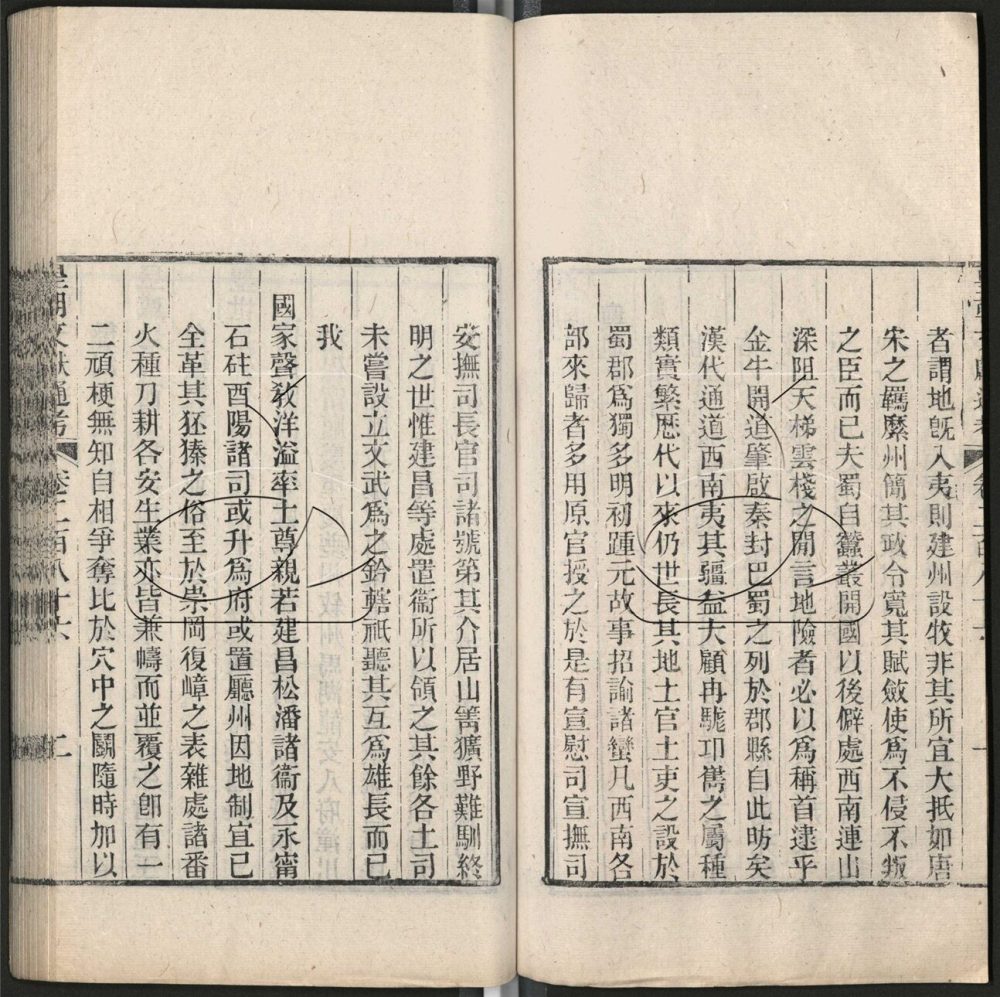 者謂地既入夷則建州設牧非其所宜大抵如唐
宋之羈縻州簡其政令寬其賦斂使爲不侵不叛
之臣而已夫蜀自蠶叢開國以後僻處西南連山
深阻天梯雲棧之閒言地險者必以爲稱首逮乎
金牛開道肇啟秦封巴蜀之列於郡縣自此昉矣
漢代通道西南夷其疆益大顧冉駹邛雟之屬種
類實繁歷代以來仍世長其地土官土吏之設於
蜀郡爲獨多明初踵元故事招諭諸蠻凡西南各
部來歸者多用原官授之於是有宣慰司宣撫司
安撫司長官司諸號第其介居山箐獷野難馴終
明之世惟建昌等處置衞所以領之其餘各土司
未嘗設立文武爲之鈐轄祇聽其互爲雄長而已
我
國家聲敎洋溢率土尊親若建昌松潘諸衞及永甯
石砫酉陽諸司或升爲府或置廳州因地制宜已
全革其狉獉之俗至於祟岡復嶂之表雜處諸番
火種刀耕各安生業亦皆兼幬而並覆之卽有一
二頑梗無知自相爭奪比於穴中之鬭隨時加以
皇朝文獻通考 卷二百八十六 二